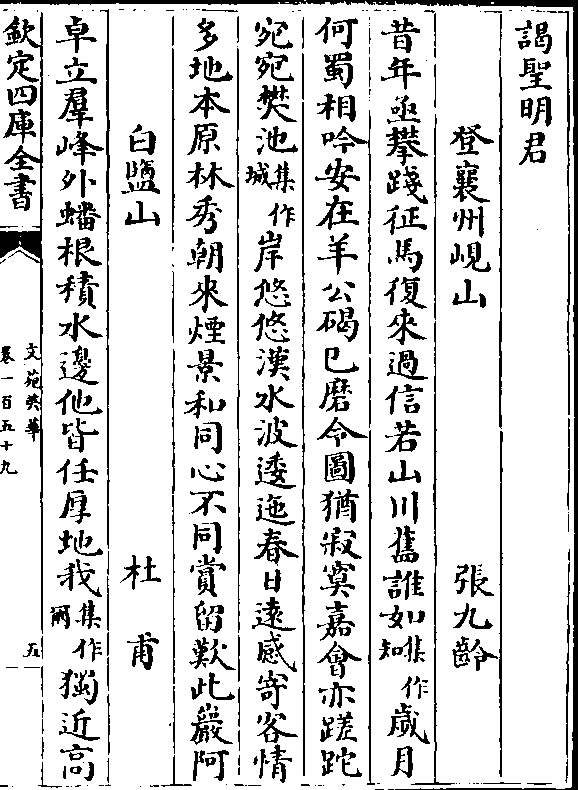 謁聖明君
登襄州峴山　張九齡
昔年亟攀踐征馬復來過信若山川舊誰如集作知歲月
何蜀相吟安在羊公碣已磨令圖猶寂寞嘉會亦蹉跎
宛宛樊池集作城岸悠悠漢水波逶迤春日遠感寄客情
多地本原林秀朝來煙景和同心不同賞留歎此巖阿
白鹽山　杜甫
卓立羣峰外蟠根積水邊他皆任厚地我集作爾獨近高
欽定四庫全書
文苑英華
卷一百五十九
五